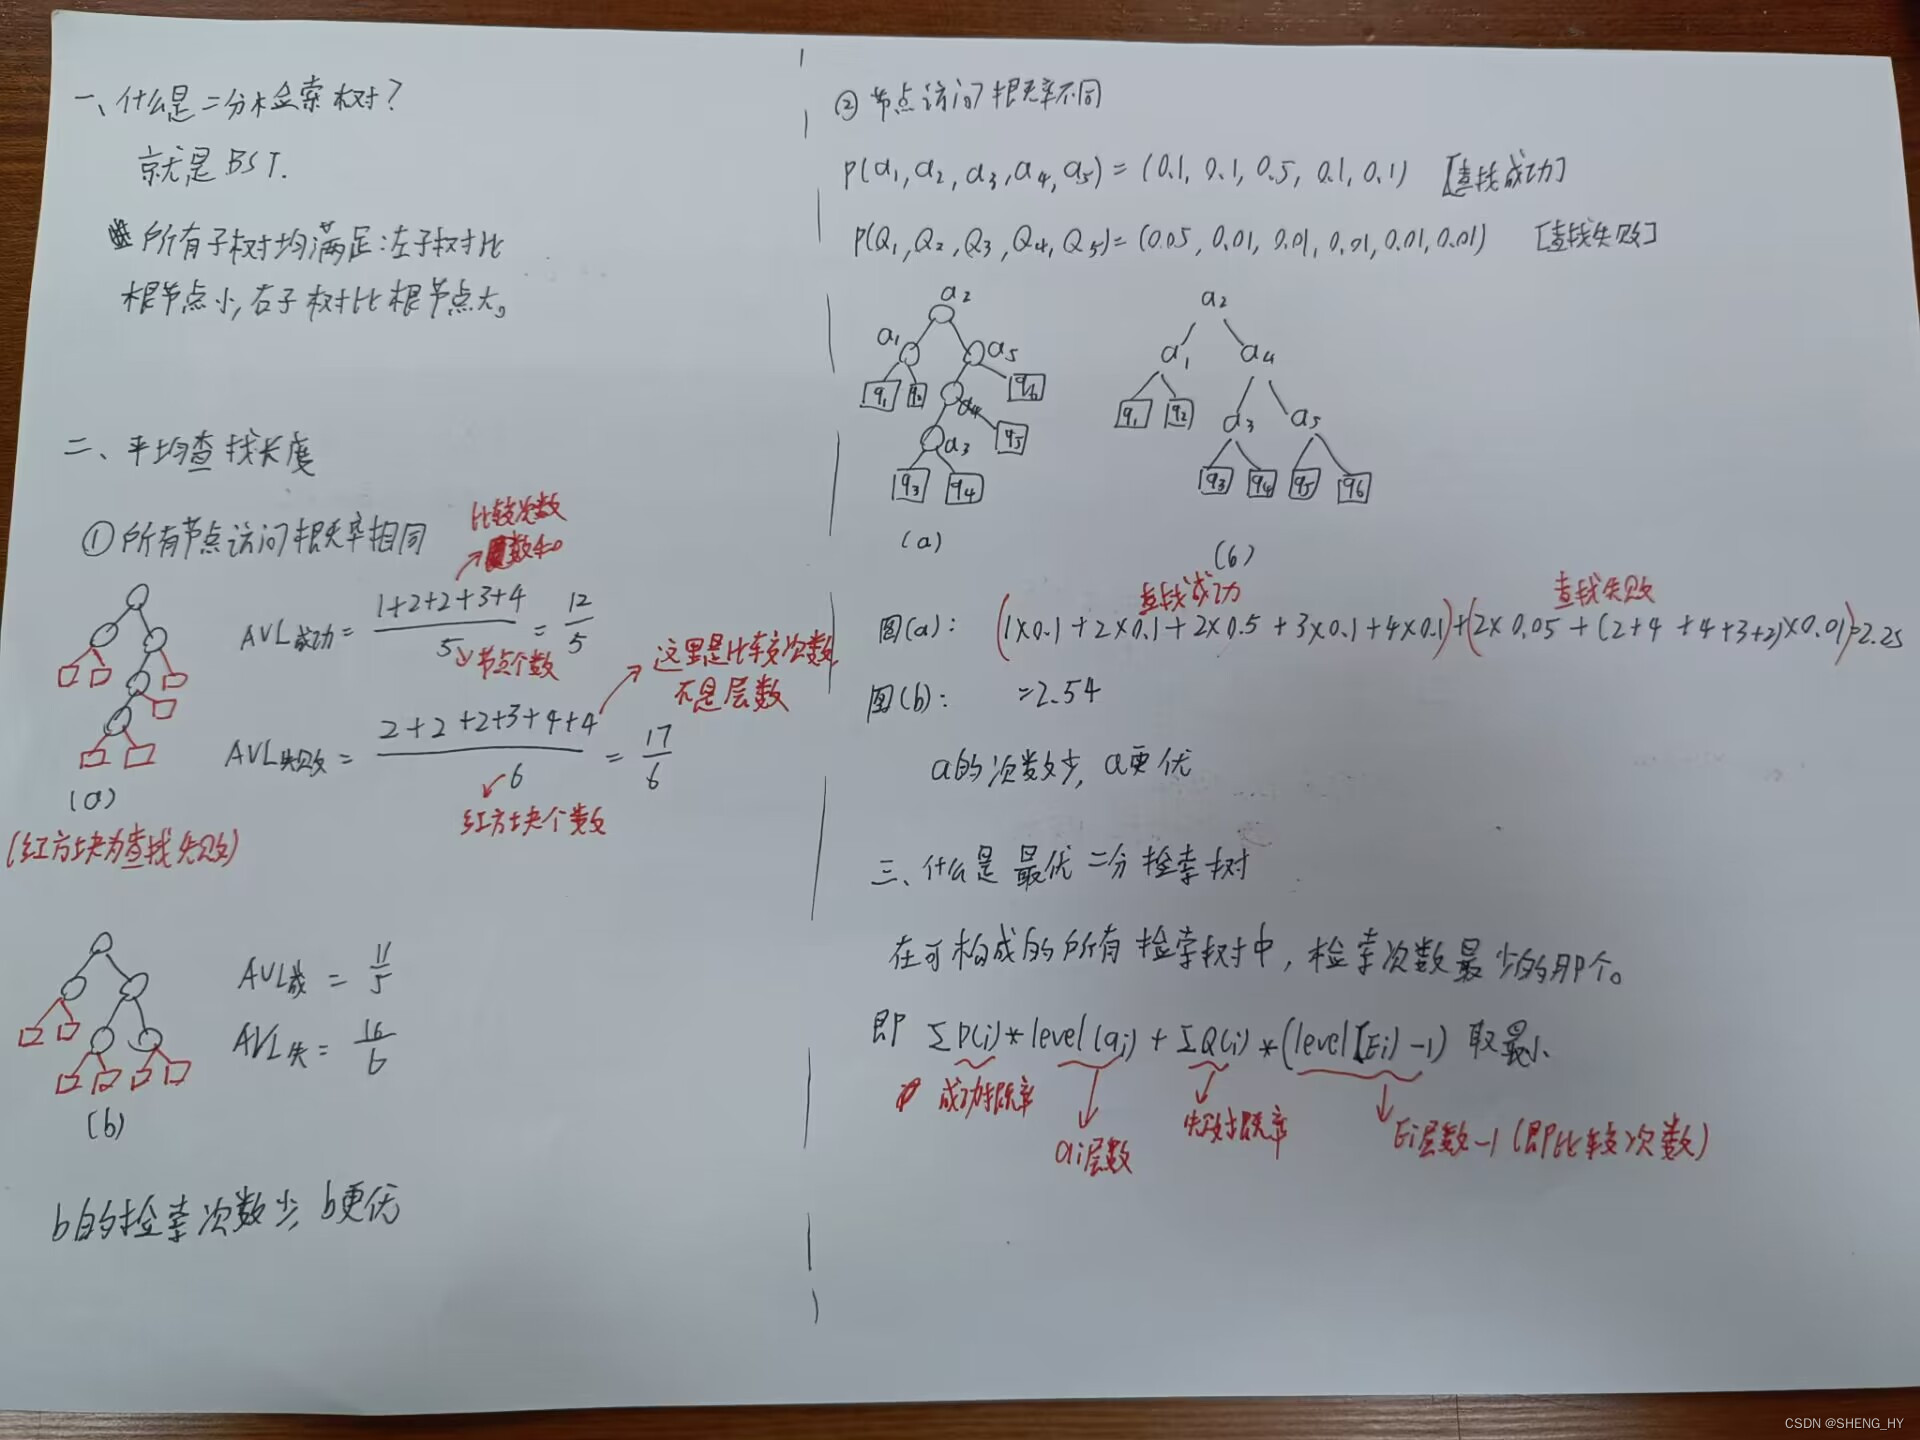 一、什么是二分检索树?
就是BST.
所有子树均满足:左子树比
根节点小,右子树比根节点大。
二、平均查找长度
①所有节点访问概率相同
比较次数
数和
AVL成功 = 1+2+2+3+4 / 5 = 12/5
节点个数
这里是比较次数,
不是层数
AVL失败 = 2+2+2+3+4+4 / 6 = 17/6
红方块个数
(a)
(红方块为查找失败)
AVL成 = 11/5
AVL失 = 16/6
(b)
b的检索次数少, b更优
②节点访问概率不同
P(a1,a2,a3,a4,a5)=(0.1, 0.1, 0.5, 0.1, 0.1) [查找成功]
P(Q1,Q2,Q3,Q4,Q5)=(0.05, 0.01, 0.01, 0.01, 0.01, 0.01) [查找失败]
a2
a1 a5
q1 q2 a4 q6
a3 q5
q3 q4
(a)
a2
a1 a4
q1 q2 a3 a5
q3 q4 q5 q6
(b)
查找成功 查找失败
图(a): (1×0.1+2×0.1+2×0.5+3×0.1+4×0.1)+(2×0.05+(2+4+4+3+2)×0.01)=2.25
图(b): =2.54
a的次数少, a更优
三、什么是最优二分检索树
在可构成的所有检索树中,检索次数最少的那个。
即 ΣP(i)*level(ai)+ΣQ(i)*(level(Ei)-1) 取最小、
成功概率
ai层数
失败概率
Ei层数-1(即比较次数)
CSDN @SHENG_HY